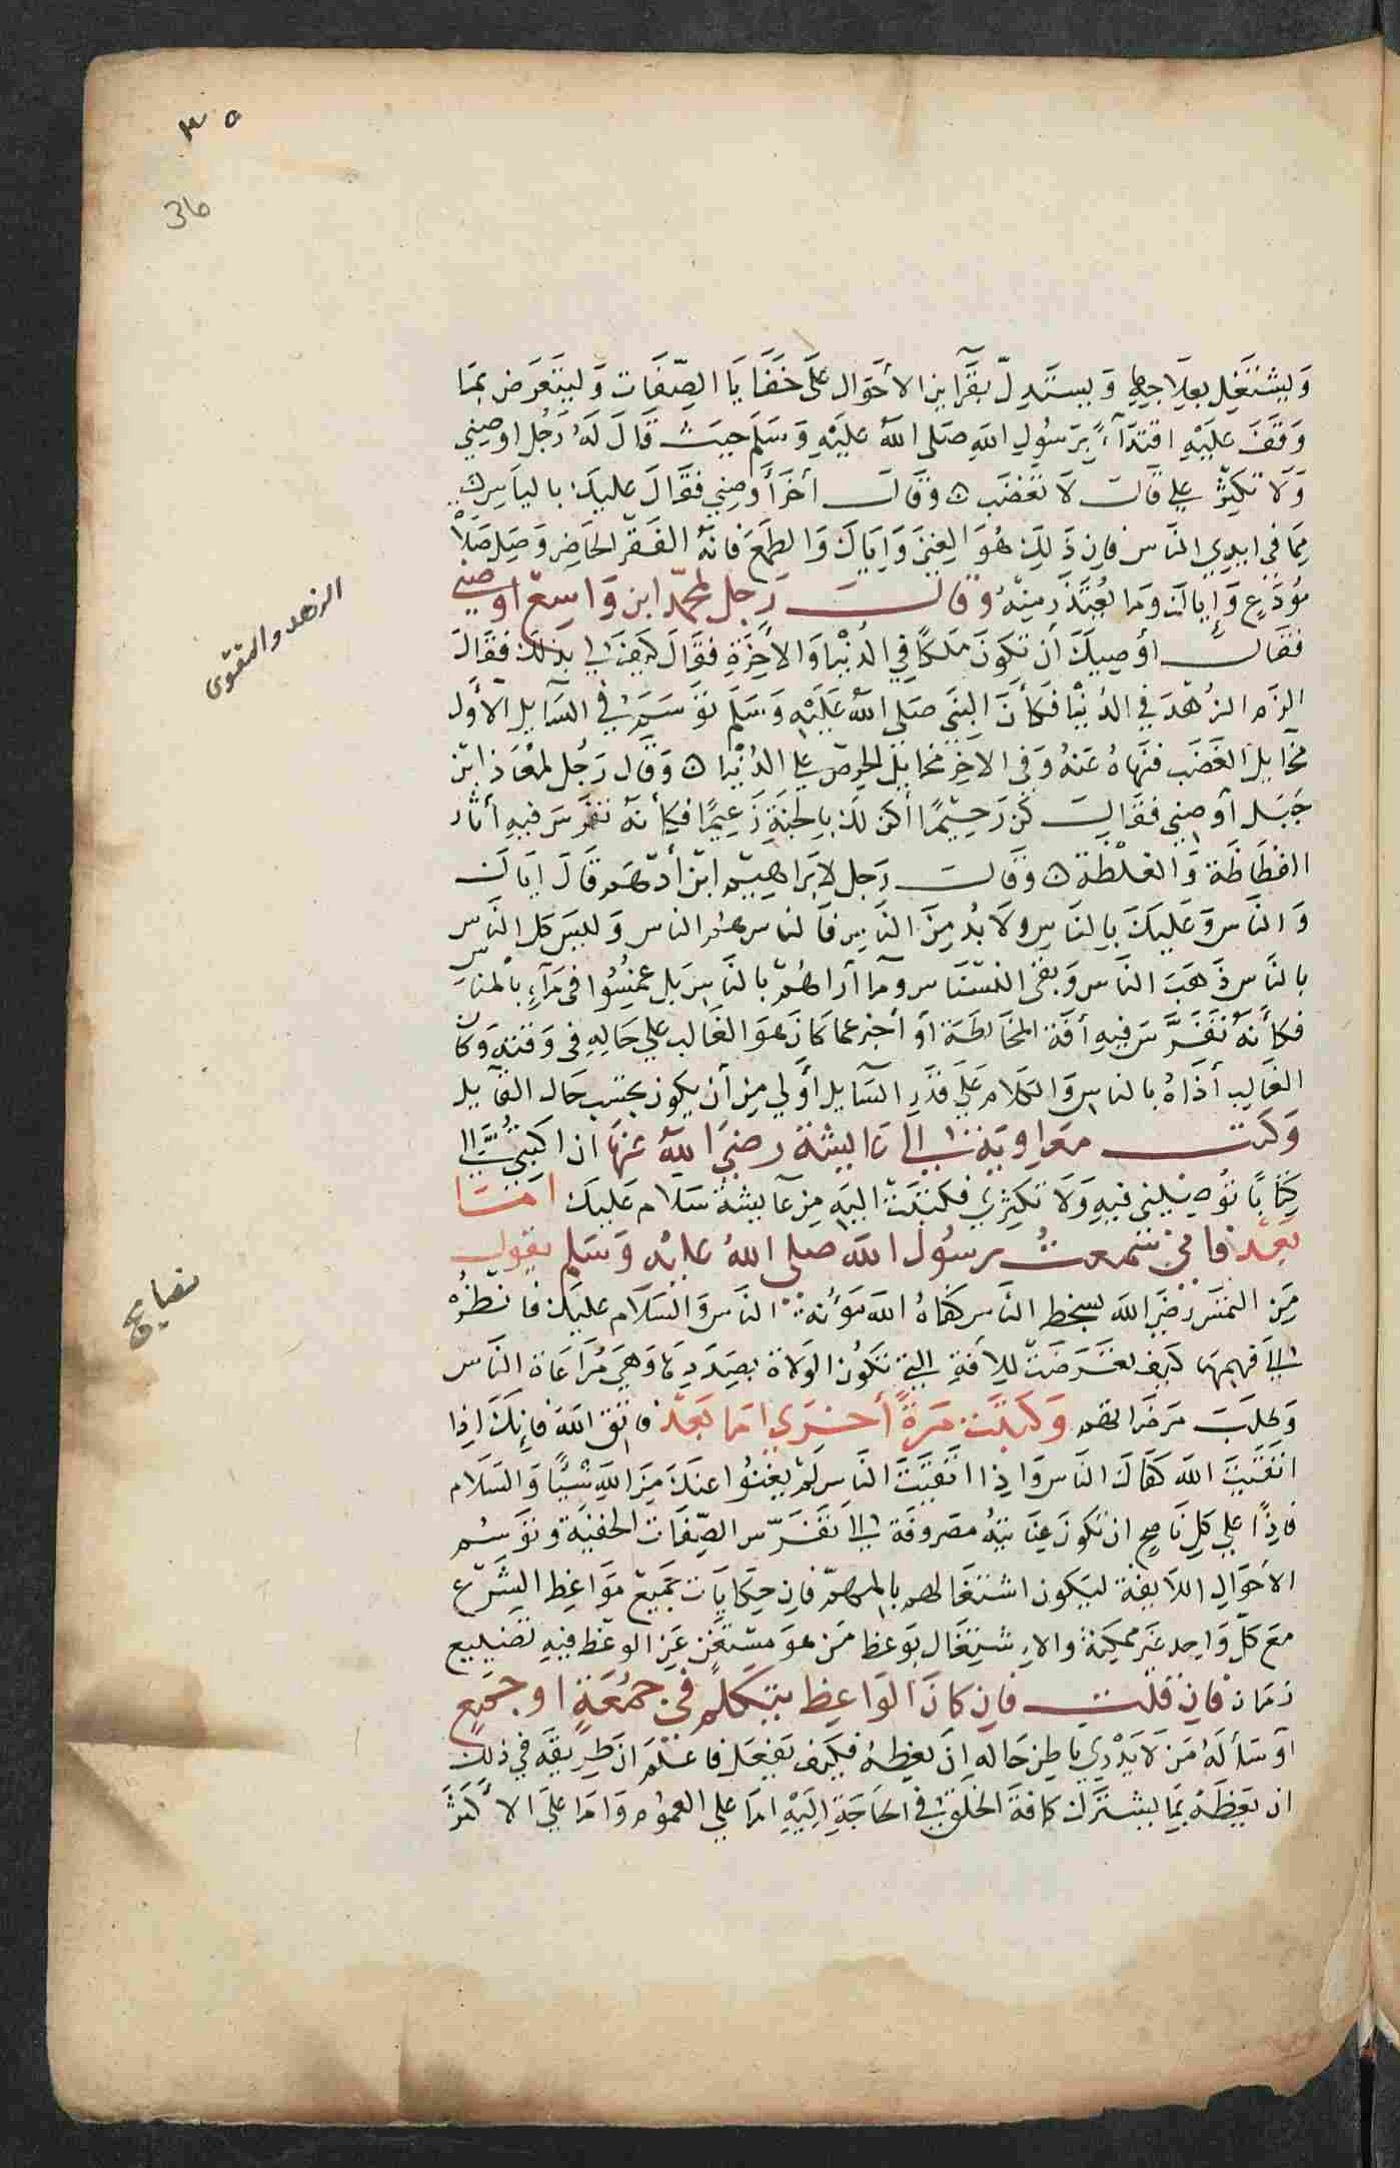 ٣٥
36
وَليشتَغِل بعِلَاجِهَا وَيستَدِلّ بقَرَاين الأحَوال عَلَى خَفَايَا الصِّفَات وَليتَعَرَض بمَا
وَقَفَ عَليَهِ اقتدَآءً برَسُولِ اللهِ صَلى اللهُ عَليَهِ وَسَلم حيث قَالَ لَهُ رَجُل اوصِني
وَلَا تكثر علي قالَ لَا تغضب ۞ وقالَ أخر أوصِني فقَالَ عليك باليَاسِ
مِمَا في ايدي الناس فان ذَلِكَ هُوَ الغِنى وَايَاكَ وَالطمعَ فَانهُ الفَقر الحَاضر وَصَل صَلَاة
مُودِّعٍ وَإياكَ ومَا يُعتَذَر مِنهُ وقالَ رَجل لمحمّد ابن وَاسِع اوصني
فقالَ أوصِيكَ أن تكونَ ملكًا في الدُنْيا وَالأخِرَةِ فقَالَ كيفَ لي بذلكَ فقَالَ
الزَم الزُهْدَ في الدُنيْا فكأنَ النبَي صَلى اللهُ عَليَهِ وَسَلم توَسَمَ في السَآيل الأول
مخايل الغَضَب فنهَاهُ عَنهُ وَفي الآخر مخايل الحرص علي الدُنْيا ۞ وَقال رَجُل لمعَاذ ابن
جَبَل أوصِني فقَالَ كن رَحيمًا أكن لك بالجنَةِ زَعيمًا فكأنهُ تفرسَ فيهِ أثار
الفظَاظَة وَالغلظة ۞ وَقالَ رَجل لإبرَاهيم ابن أدهَم قَالَ ايَاكَ
وَالناسَ وَعَليكَ بالنَاسِ ولَا بُد مِنَ النَاسِ فَالناس هُم الناس وَليسَ كل النَاس
بالنَاس ذَهَبَ النَاس وَبقي النسنَاس ومَا أراهُم بالنَاس بَل غمِسُوا في مَآءِ بالمنَاس
فكأنهُ تفرَّسَ فيهِ أفَة المخَالطَة أو أخبر عما كانَ هوَ الغَالب علي حَالِهِ في وَقتهِ وَكان
الغَالِب أذَاهُ بالناسِ وَالكلَام عَلي قدَرِ السَآيل أولي مِن أن يكون بحسب حَال القآيل
وَكتبَ معَاويَة إلي عَايشَة رضيَ اللهُ عَنهَا أن اكتبي إليَّ
كِتَابًا تُوصِيني فيهِ وَلَا تكثِرِي فكتَبَت اليهِ مِن عآيشة سَلَام عَليكَ امَا
بَعد فاني سَمعتُ رسُول الله صلى اللهُ عليه وَسَلم يقول
مَن التمسَ رضَى اللهَ بسخط النَاس كفَاهُ اللهَ مَؤنة النَاس وَالسَلَام عليكَ فانظرُ
الي فهمِهَا كيف تعَرَضَت للآفةِ التي تكُون الوَلاة بصَدَدِهَا وَهِيَ مُرَاعَاة النَاس
وَطلَبَ مرضَاتهم وَكتبَت مَرةً أخرَي امَا بَعد فاتق اللهَ فإنكَ إذا
اتقيَتَ اللهَ كفَاكَ النَاس وَاذا اتقيَتَ النَاس لَم يغنُوا عنكَ مِنَ اللهِ شيئًا وَالسَلَام
فاذًا علي كل نَاصح ان تكون عِنَايتهُ مصَروفَة الي تفَرّس الصِّفَات الخفيَة وتوَسُم
الأحَوالِ اللايقة ليَكون اشتغَالهم بالمهمّ فان حكايَات جَميعَ مَوَاعِظ الشَرع
معَ كل وَاحد غير ممكنة والاشتِغَال بوَعظ مَن هوَ مستغنٍ عَن الوَعظ فيهِ تضييع
زمَان فان قلت فإن كانَ الوَاعِظ يتكلم في جمُعَةٍ أو جمعٍ
أو سَألهُ مَن لَا يَدْري باطِن حَاله ان يعظهُ فكيف يَفعَل فاعلم ان طريقَه في ذلك
ان يَعِظَهُ بمَا يشترك كافة الخَلق في الحَاجَةِ إليَهِ امَا علي العموم وَامَا علي الأكثَر
الزهد والتقوى
نصايح